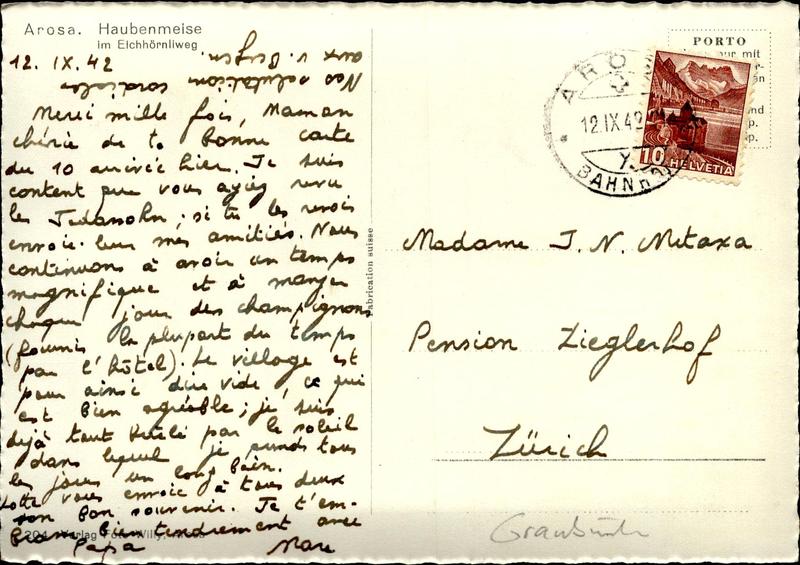 Arosa. Haubenmeise
im Eichhörnliweg
12. IX. 42
Merci mille fois, Maman
chérie de ta bonne carte
du 10 arrivée hier. Je suis
content que vous ayiez revu
les Jedansohn; si tu les revois
envoie-leur mes amitiés. Nous
continuons à avoir un temps
magnifique et à manger
chaque jour des champignons
(fournis la plupart du temps
par l'hôtel). Le village est
pour ainsi dire vide, ce qui
est bien agréable; je suis
déjà tout brûlé par le soleil
dans lequel je prends tous
les jours un long bain.
Lotte vous envoie à tous deux
son bon souvenir. Je t'em-
brasse bien tendrement avec
Papa
Marc
Nos salutations
aux v.
Verlag Foto Willy, Arosa
Fabrication suisse
PORTO
mit
und
AROSA
12.IX.42
BAHNH
10 HELVETIA
Madame J. N. Metaxa
Pension Zieglerhof
Zürich
Graubünden